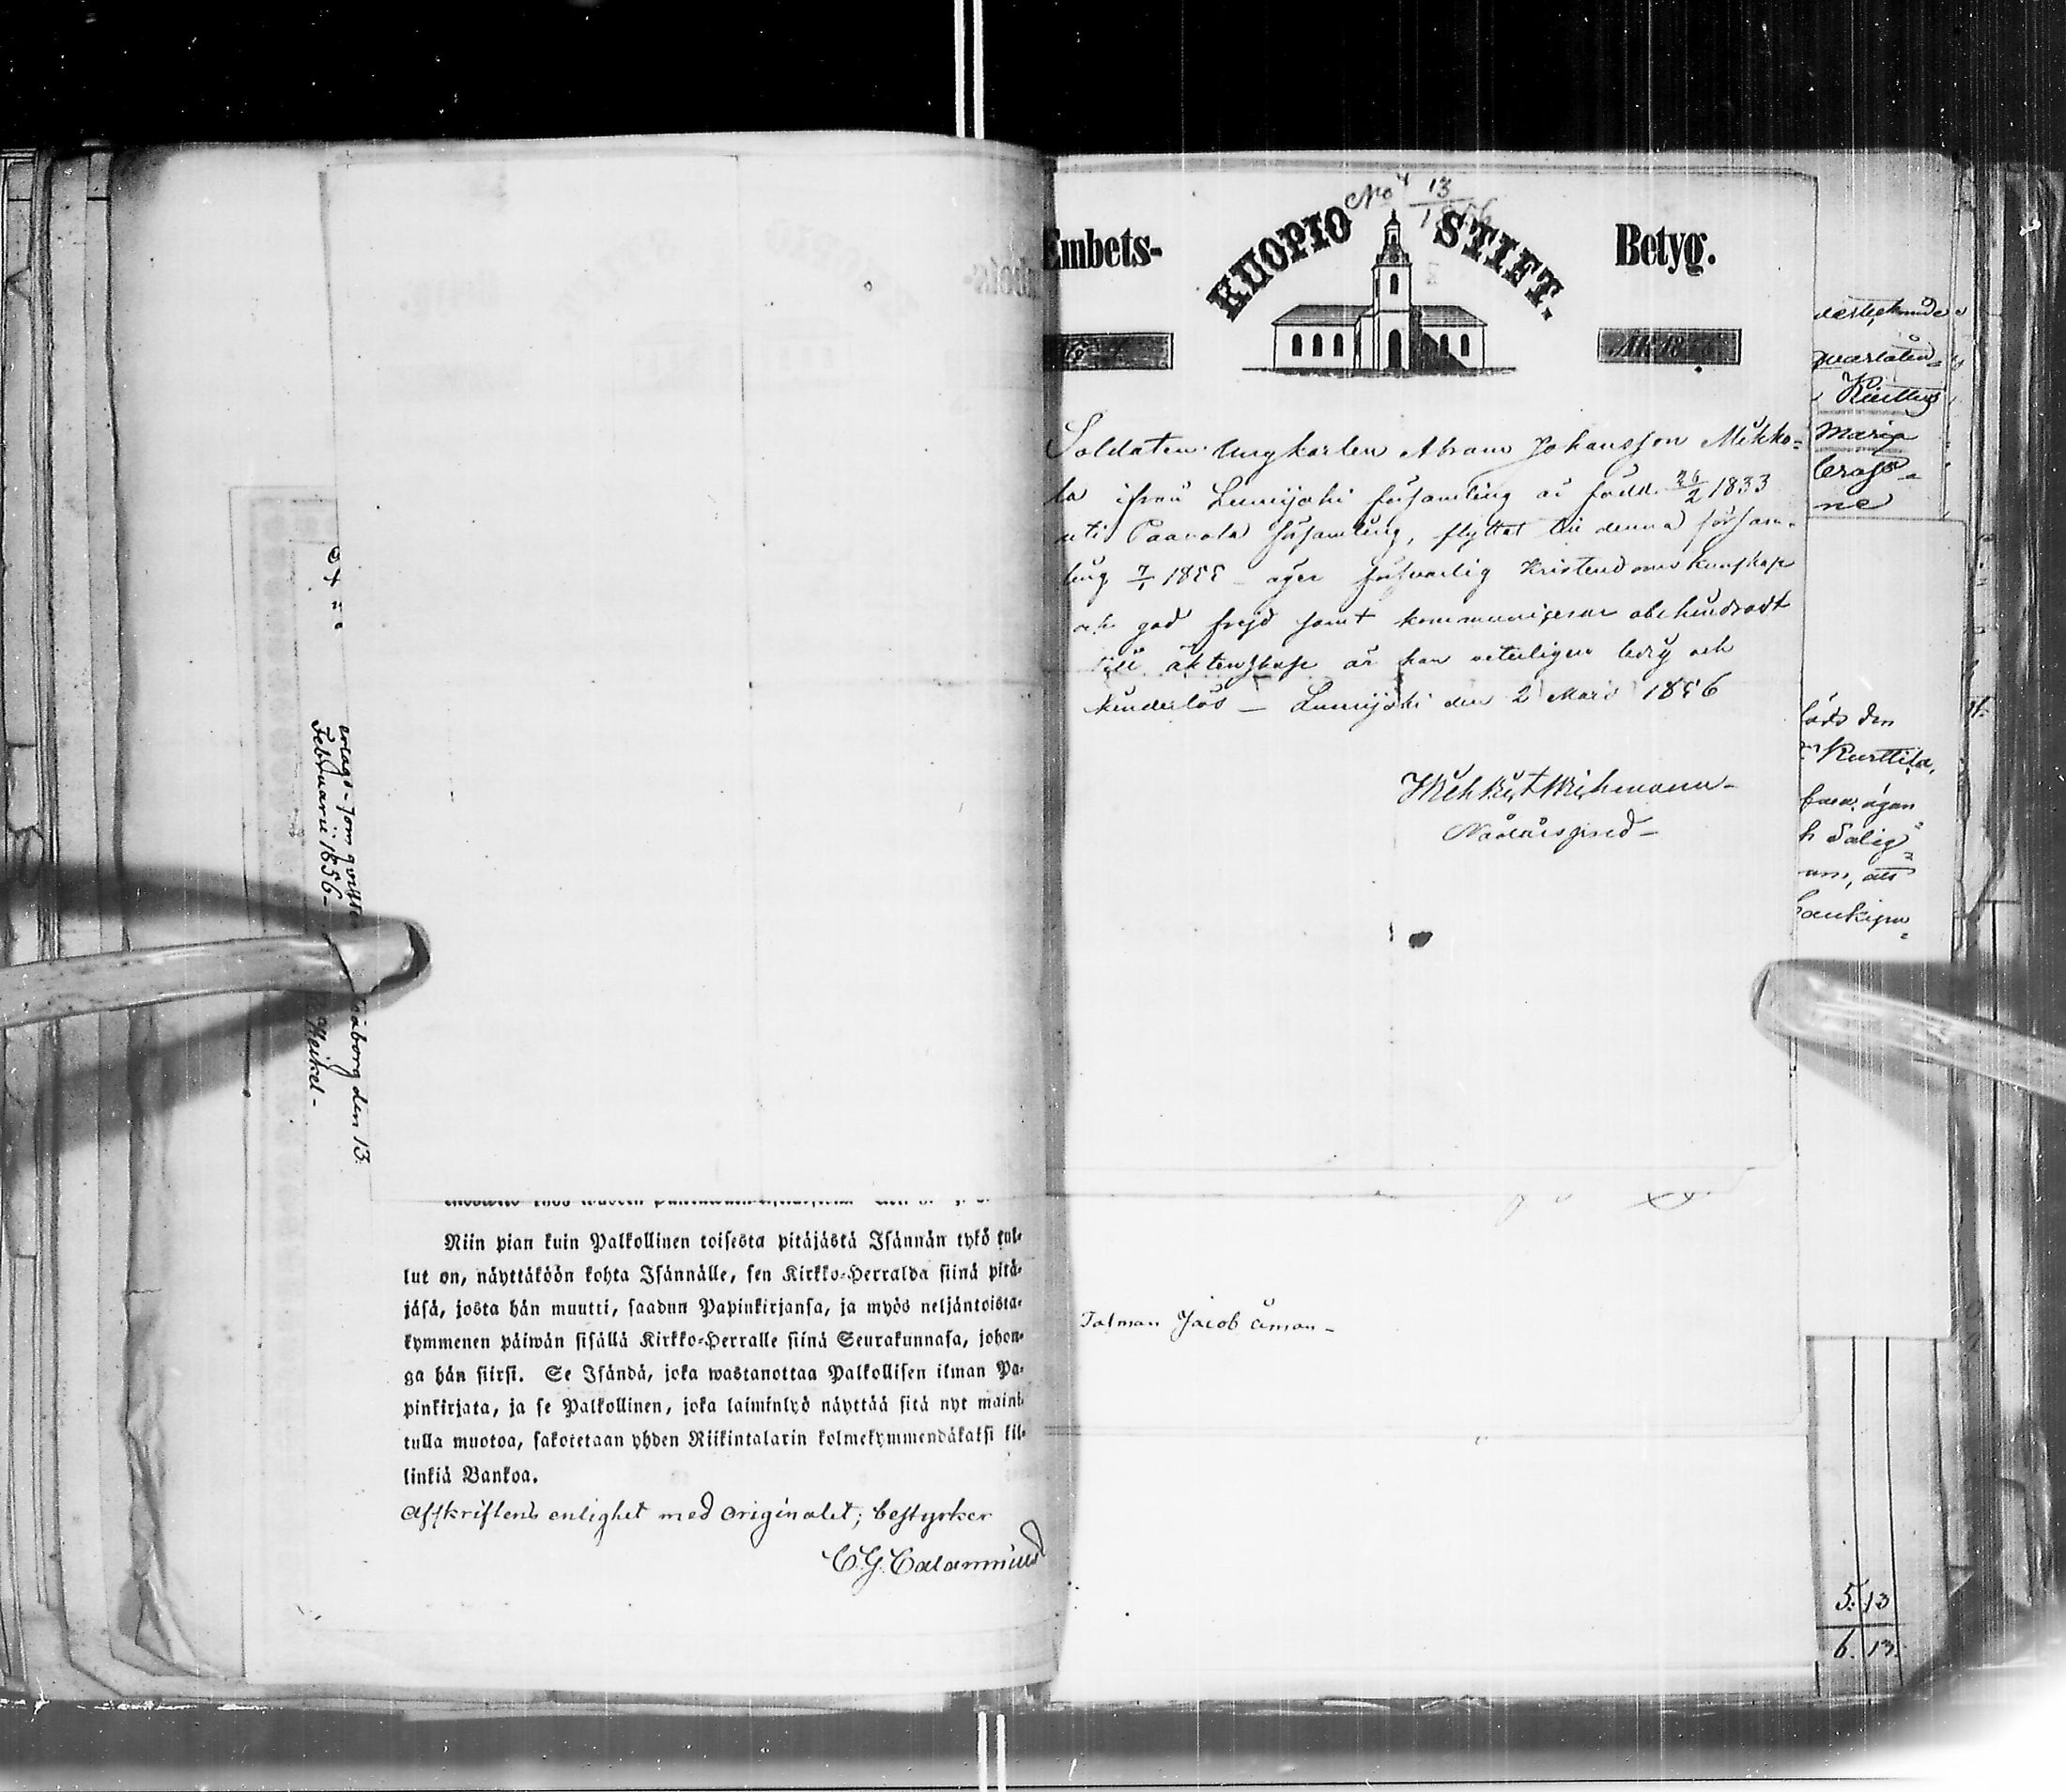 No 13
1856
Embets- KUOPIO STIFT. Betyg.
År 1856
Soldaten Ungkarlen Abram Johansson Mikko-
la ifrån Lumijoki församling är född 26/2 1833
uti Paavola församling, flyttat till denna försam-
ling 7/1 1855 – äger försvarlig Kristendomskunskap
och god frejd samt kommunicerar obehindradt
till äktenskap är han veterligen ledig och
hinderlös – Lumijoki den 2 Mars 1856
Wichmann
Nådårspred–
Talman Jacob Åman–
Februarii 1856–
aborg den 13
Heikel–
Niin pian kuin Palkollinen toisesta pitäjästä Isännän tykö tul-
lut on, näyttäköön kohta Isännälle, sen Kirkko-Herralda siinä pitä-
jäsä, josta hän muutti, saadun Papinkirjansa, ja myös neljäntoista-
kymmenen päiwän sisällä Kirkko-Herralle siinä Seurakunnasa, johon-
ga hän siirsi. Se Isändä, joka wastanottaa Palkollisen ilman Pa-
pinkirjata, ja se Palkollinen, joka laiminlyö näyttää sitä nyt maini-
tulla muotoa, sakotetaan yhden Riikintalarin kolmekymmendäkaksi kil-
linkiä Bankoa.
Afskriftens enlighet med originalet; bestyrker
C.G. Calamnius
Maria
ne
låds den
Kurttila,
h Salig
5. 13
6. 13.